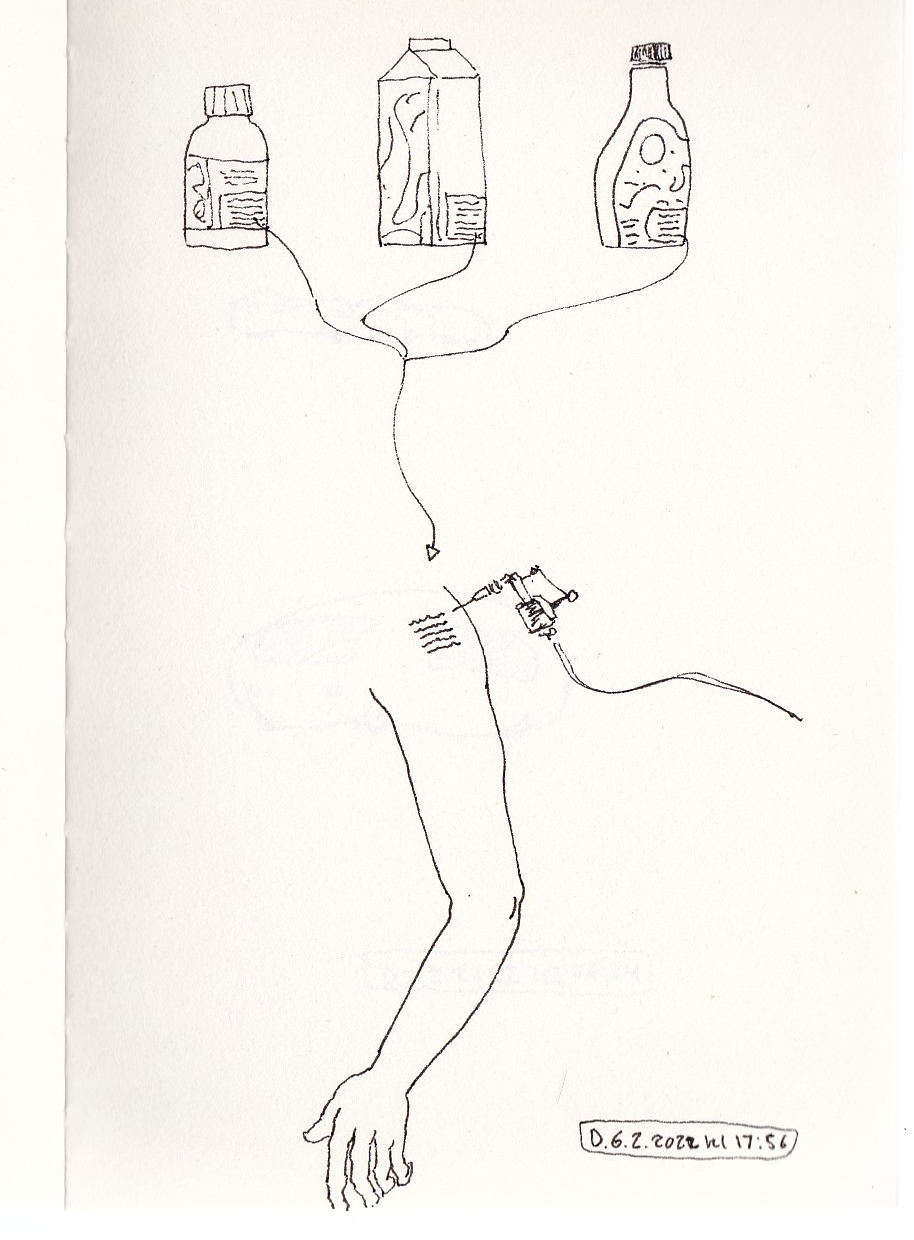 D. 6.2.2022 kl 17:56